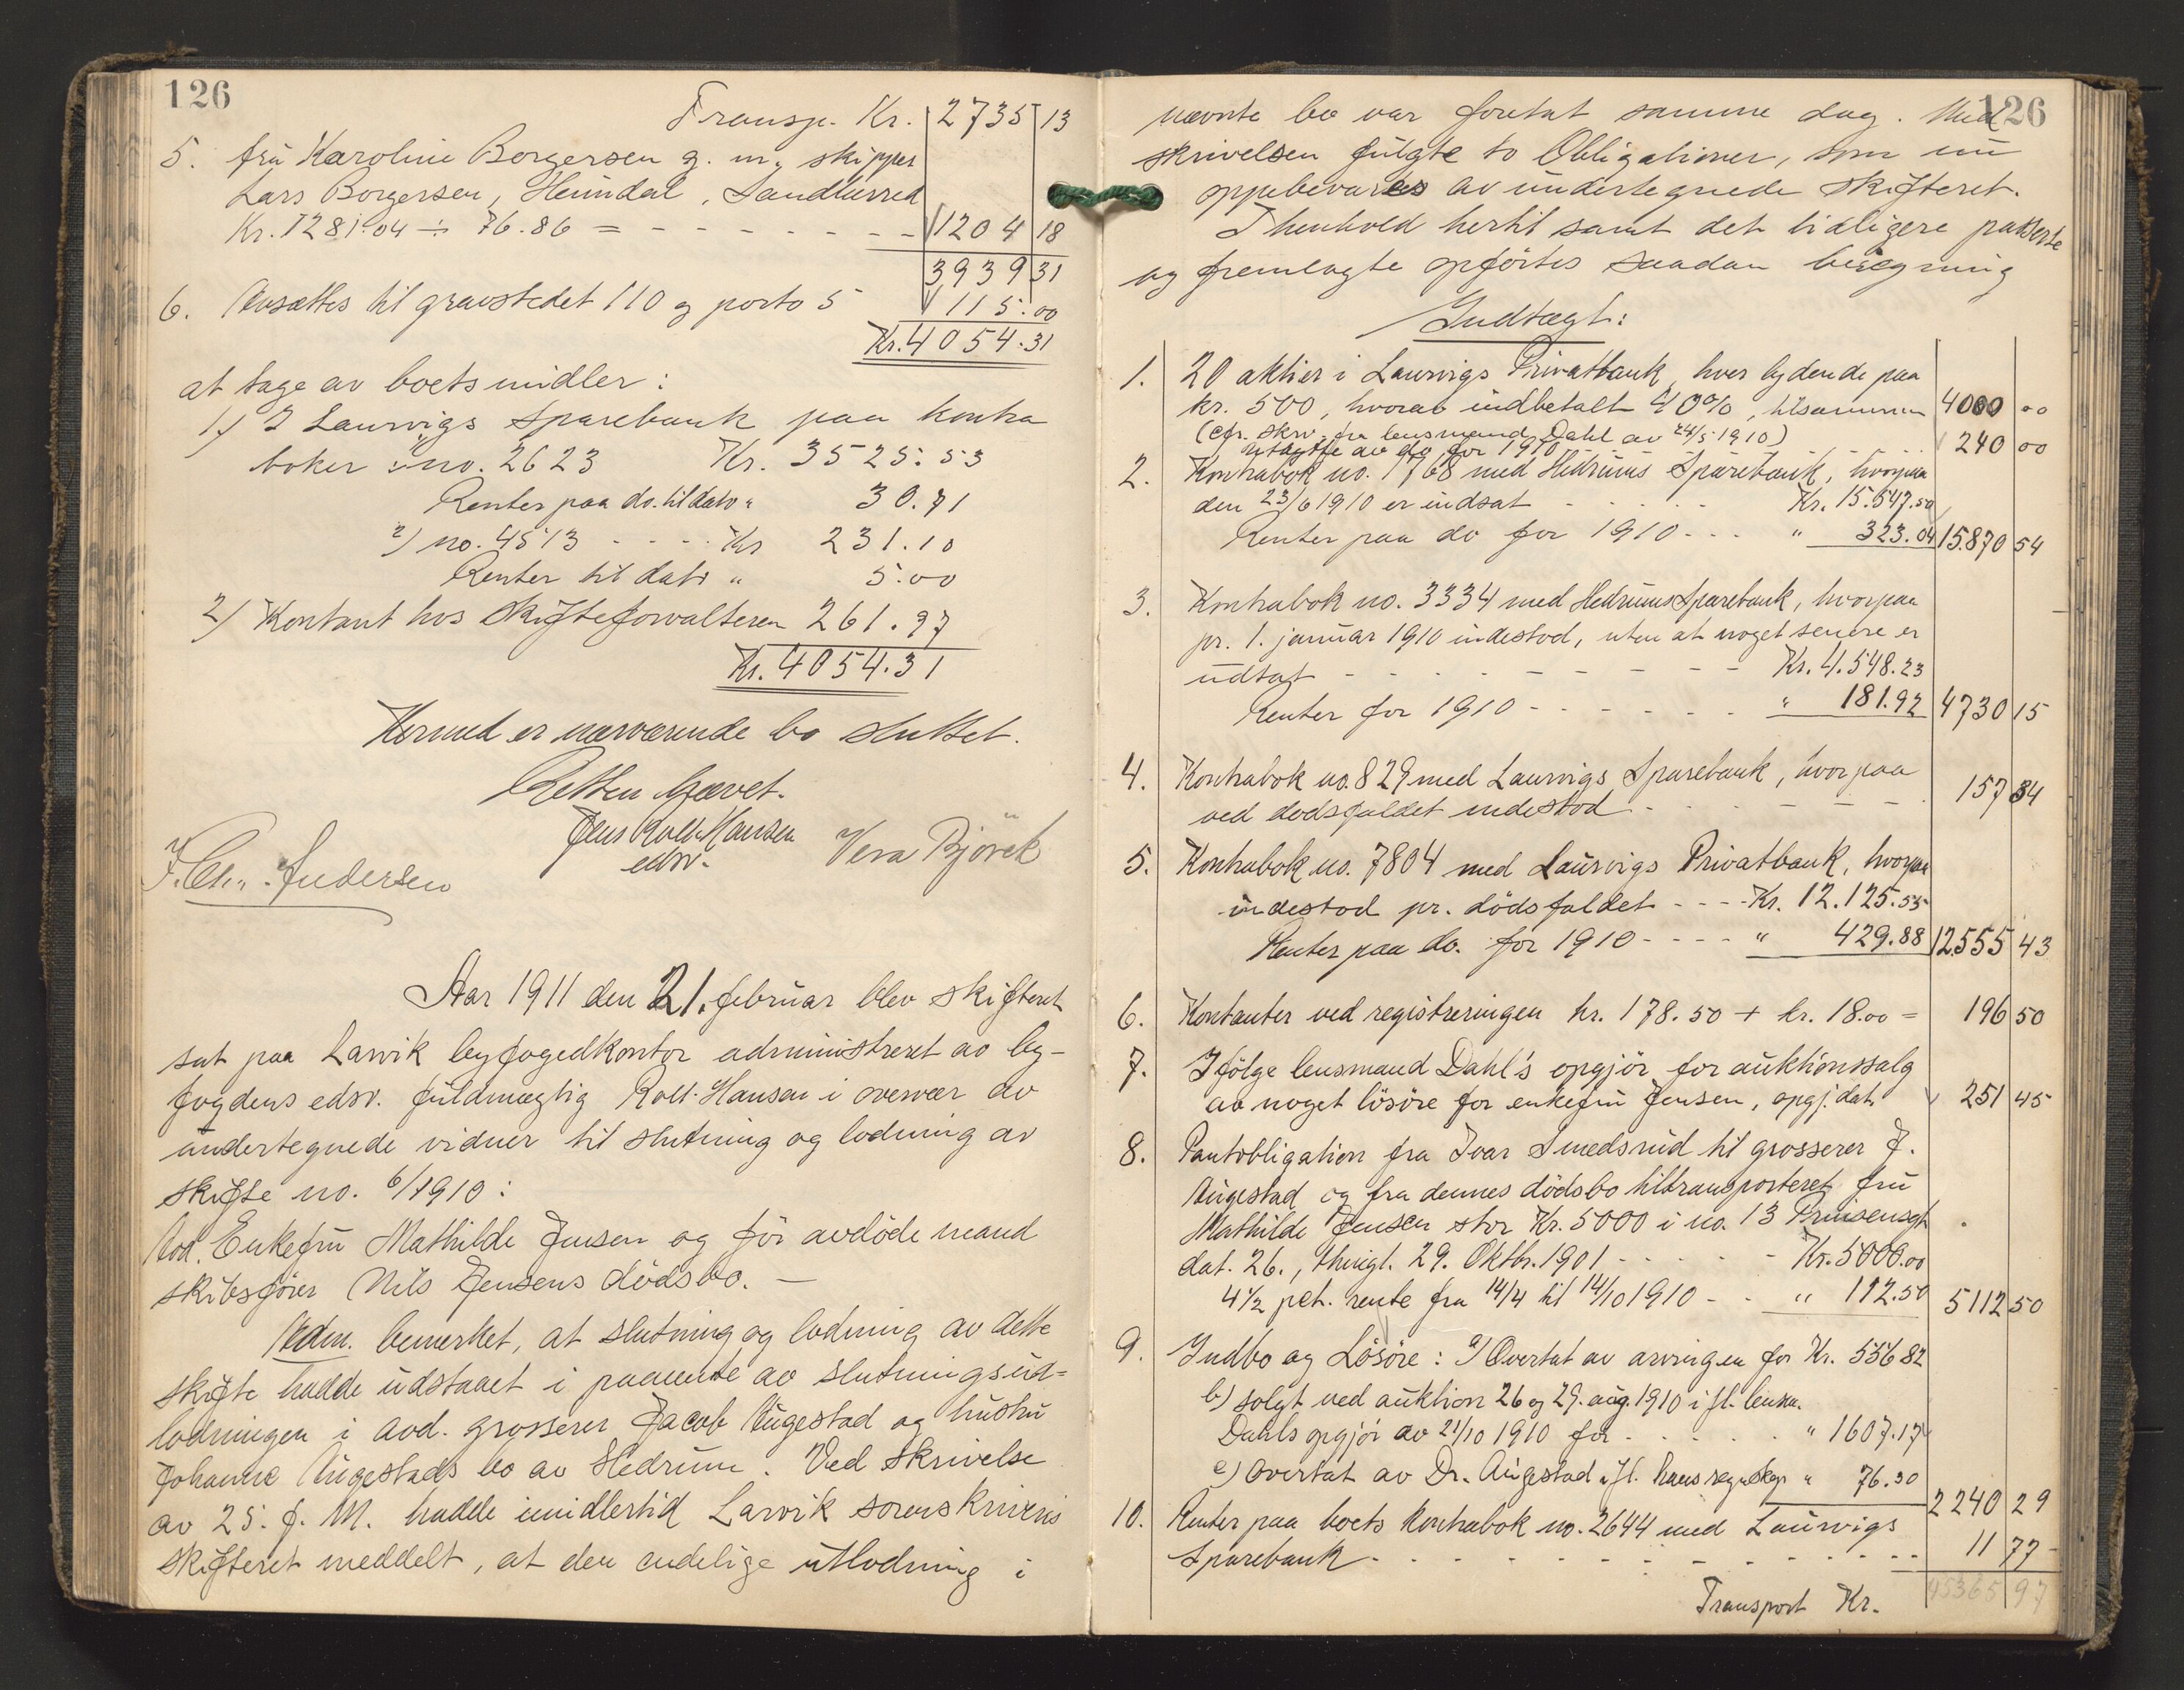 126
Transp. Kr. 2735 13
5. fru Karoline Borgersen g. m. skipper
Lars Borgersen, Heimdal, Sandherred
Kr. 1281.04 ÷ 76.86 = - - - - - - - - 1204 18
3939 31
6. Avsættes til gravstedet 110 og porto 5 115.00
Kr. 4054.31
at tage av boets midler:
1.) I Laurvigs Sparebank paa kontra
bøker: no. 2623 Kr. 3525.53
Renter paa do. til dato " 30.71
2) no. 4513 - - - - Kr 231.10
Renter til dato " 5.00
2) Kontant hos skifteforvalteren 261.97
Kr. 4054.31
Hermed er nærværende bo sluttet.
Retten hævet.
Jens Roll-Hansen
edsv.
Vera Björck
F. Chr. Andersen
Aar 1911 den 21. februar blev skifteret
sat paa Larvik byfogedkontor administreret av by-
fogdens edsv. fuldmægtig Roll-Hansen i overvær av
undertegnede vidner til slutning og lodning av
skifte no. 6/1910:
Avd. Enkefru Mathilde Jensen og før avdøde mand
skibsfører Nils Jensens dødsbo. —
Adm. bemerket, at slutning og lodning av dette
skifte hadde udstaaet i paavente av slutningsud-
lodningen i avd. grosserer Jacob Augestad og hustru
Johanne Augestads bo av Hedrum. Ved skrivelse
av 25. f. M. hadde imidlertid Larvik sorenskriveris
skifteret meddelt, at den endelige utlodning i
126
nævnte bo var foretat samme dag. Med
skrivelsen fulgte to Obligationer, som nu
oppebevares av undertegnede skifteret.
I henhold hertil samt det tidligere passerte
og fremlagte opførtes saadan beregning
Indtægt:
1. 20 aktier i Laurvigs Privatbank, hver lydende paa
kr. 500, hvorav indbetalt 40%, tilsammen 4000 00
(cfr. skriv. fra lensmand Dahl av 24/5 1910)
Utbytte av do for 1910 - - - 240 00
2. Kontrabok no. 1768 med Hedrums Sparebank, hvorpaa
den 23/6 1910 er indsat - - - - - Kr. 15.547.50
Renter paa do for 1910 - - - " 323.04 15870 54
3. Kontrabok no. 3334 med Hedrums Sparebank, hvorpaa
pr. 1. januar 1910 indestod, uten at noget senere er
udtat - - - - - - - - Kr. 4.548.23
Renter for 1910 - - - - - - " 181.92 4730 15
4. Kontrabok no. 829 med Laurvigs Sparebank, hvorpaa
ved dødsfaldet indestod - - - - - - 157 34
5. Kontrabok no. 7804 med Laurvigs Privatbank, hvorpaa
indestod pr. dödsfaldet - - - - Kr. 12.125.55
Renter paa do. for 1910 - - - - " 429.88 12.555 43
6. Kontanter ved registreringen kr. 178.50 + kr. 18.00 = 196 50
7. Ifölge lensmand Dahl's opgjör for auktionssalg
av noget lösöre for enkefru Jensen, opgj. dat. 251 45
8. Pantobligation fra Ivar Smedsrud til grosserer J.
Augestad og fra dennes dödsbo tiltransporteret fru
Mathilde Jensen stor Kr. 5000 i no. 13 Prinsensgt.
dat. 26., thingl. 29. Oktbr. 1901 - - - - - Kr. 5000.00
4½ pct. rente fra 14/4 til 14/10 1910 - - " 112.50 5112 50
9. Indbo og Lösöre: a) Overtat av arvingen for Kr. 556 82
b) solgt ved auktion 26 og 29. aug. 1910 ifl. lensm.
Dahls opgjör av 21/10 1910 for - - - - - " 1607.17
c) overtat av Dr. Augestad ifl. hans regnskap " 76.30
2240 29
10. Renter paa boets kontrabok no. 2644 med Laurvigs
Sparebank - - - - - - - - - - - - - 11 77
Transport Kr. 45365 97